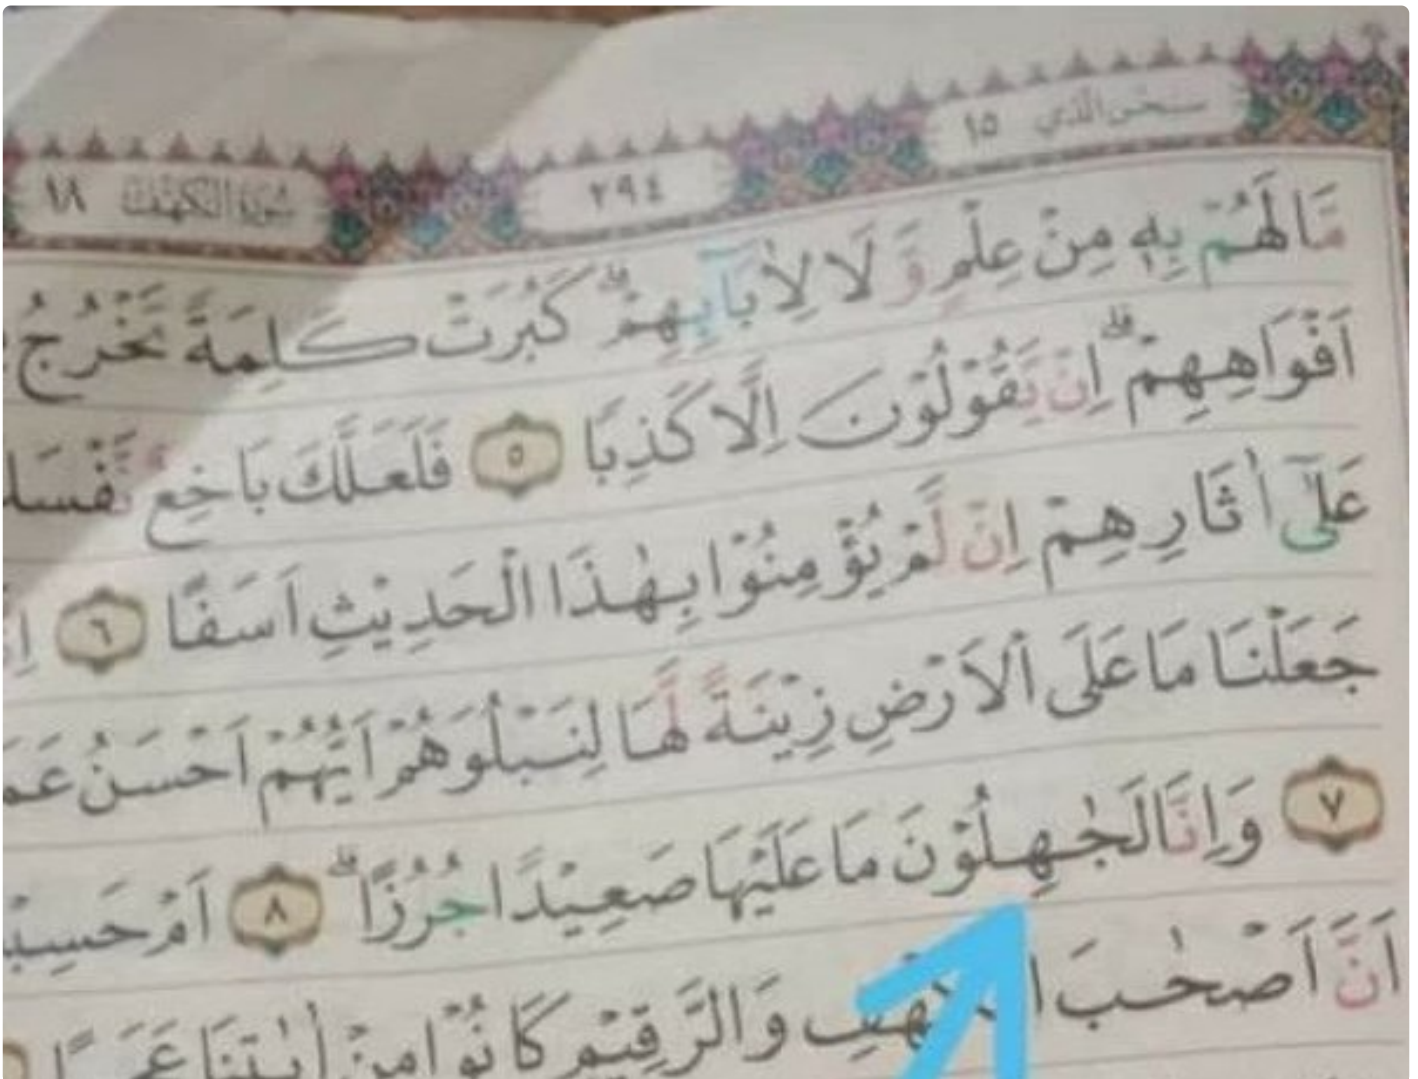 سبحن الذي ١٥
٢٩٤
سُورَةُ الْكَهْف ١٨
مَا لَهُمْ بِهٖ مِنْ عِلْمٍ وَّ لَا لِاٰبَآىِٕهِمْ ۗ كَبُرَتْ كَلِمَةً تَخْرُجُ
اَفْوَاهِهِمْ ۗ اِنْ يَّقُوْلُوْنَ اِلَّا كَذِبًا ٥ فَلَعَلَّكَ بَاخِعٌ
عَلٰٓى اٰثَارِهِمْ اِنْ لَّمْ يُؤْمِنُوْا بِهٰذَا الْحَدِيْثِ اَسَفًا ٦
جَعَلْنَا مَا عَلَى الْاَرْضِ زِيْنَةً لَّهَا لِنَبْلُوَهُمْ اَيُّهُمْ اَحْسَنُ
٧ وَاِنَّا لَجٰهِلُوْنَ مَا عَلَيْهَا صَعِيْدًا جُرُزًا ۗ ٨ اَمْ
اَنَّ اَصْحٰبَ وَالرَّقِيْمِ كَانُوْا مِنْ اٰيٰتِنَا